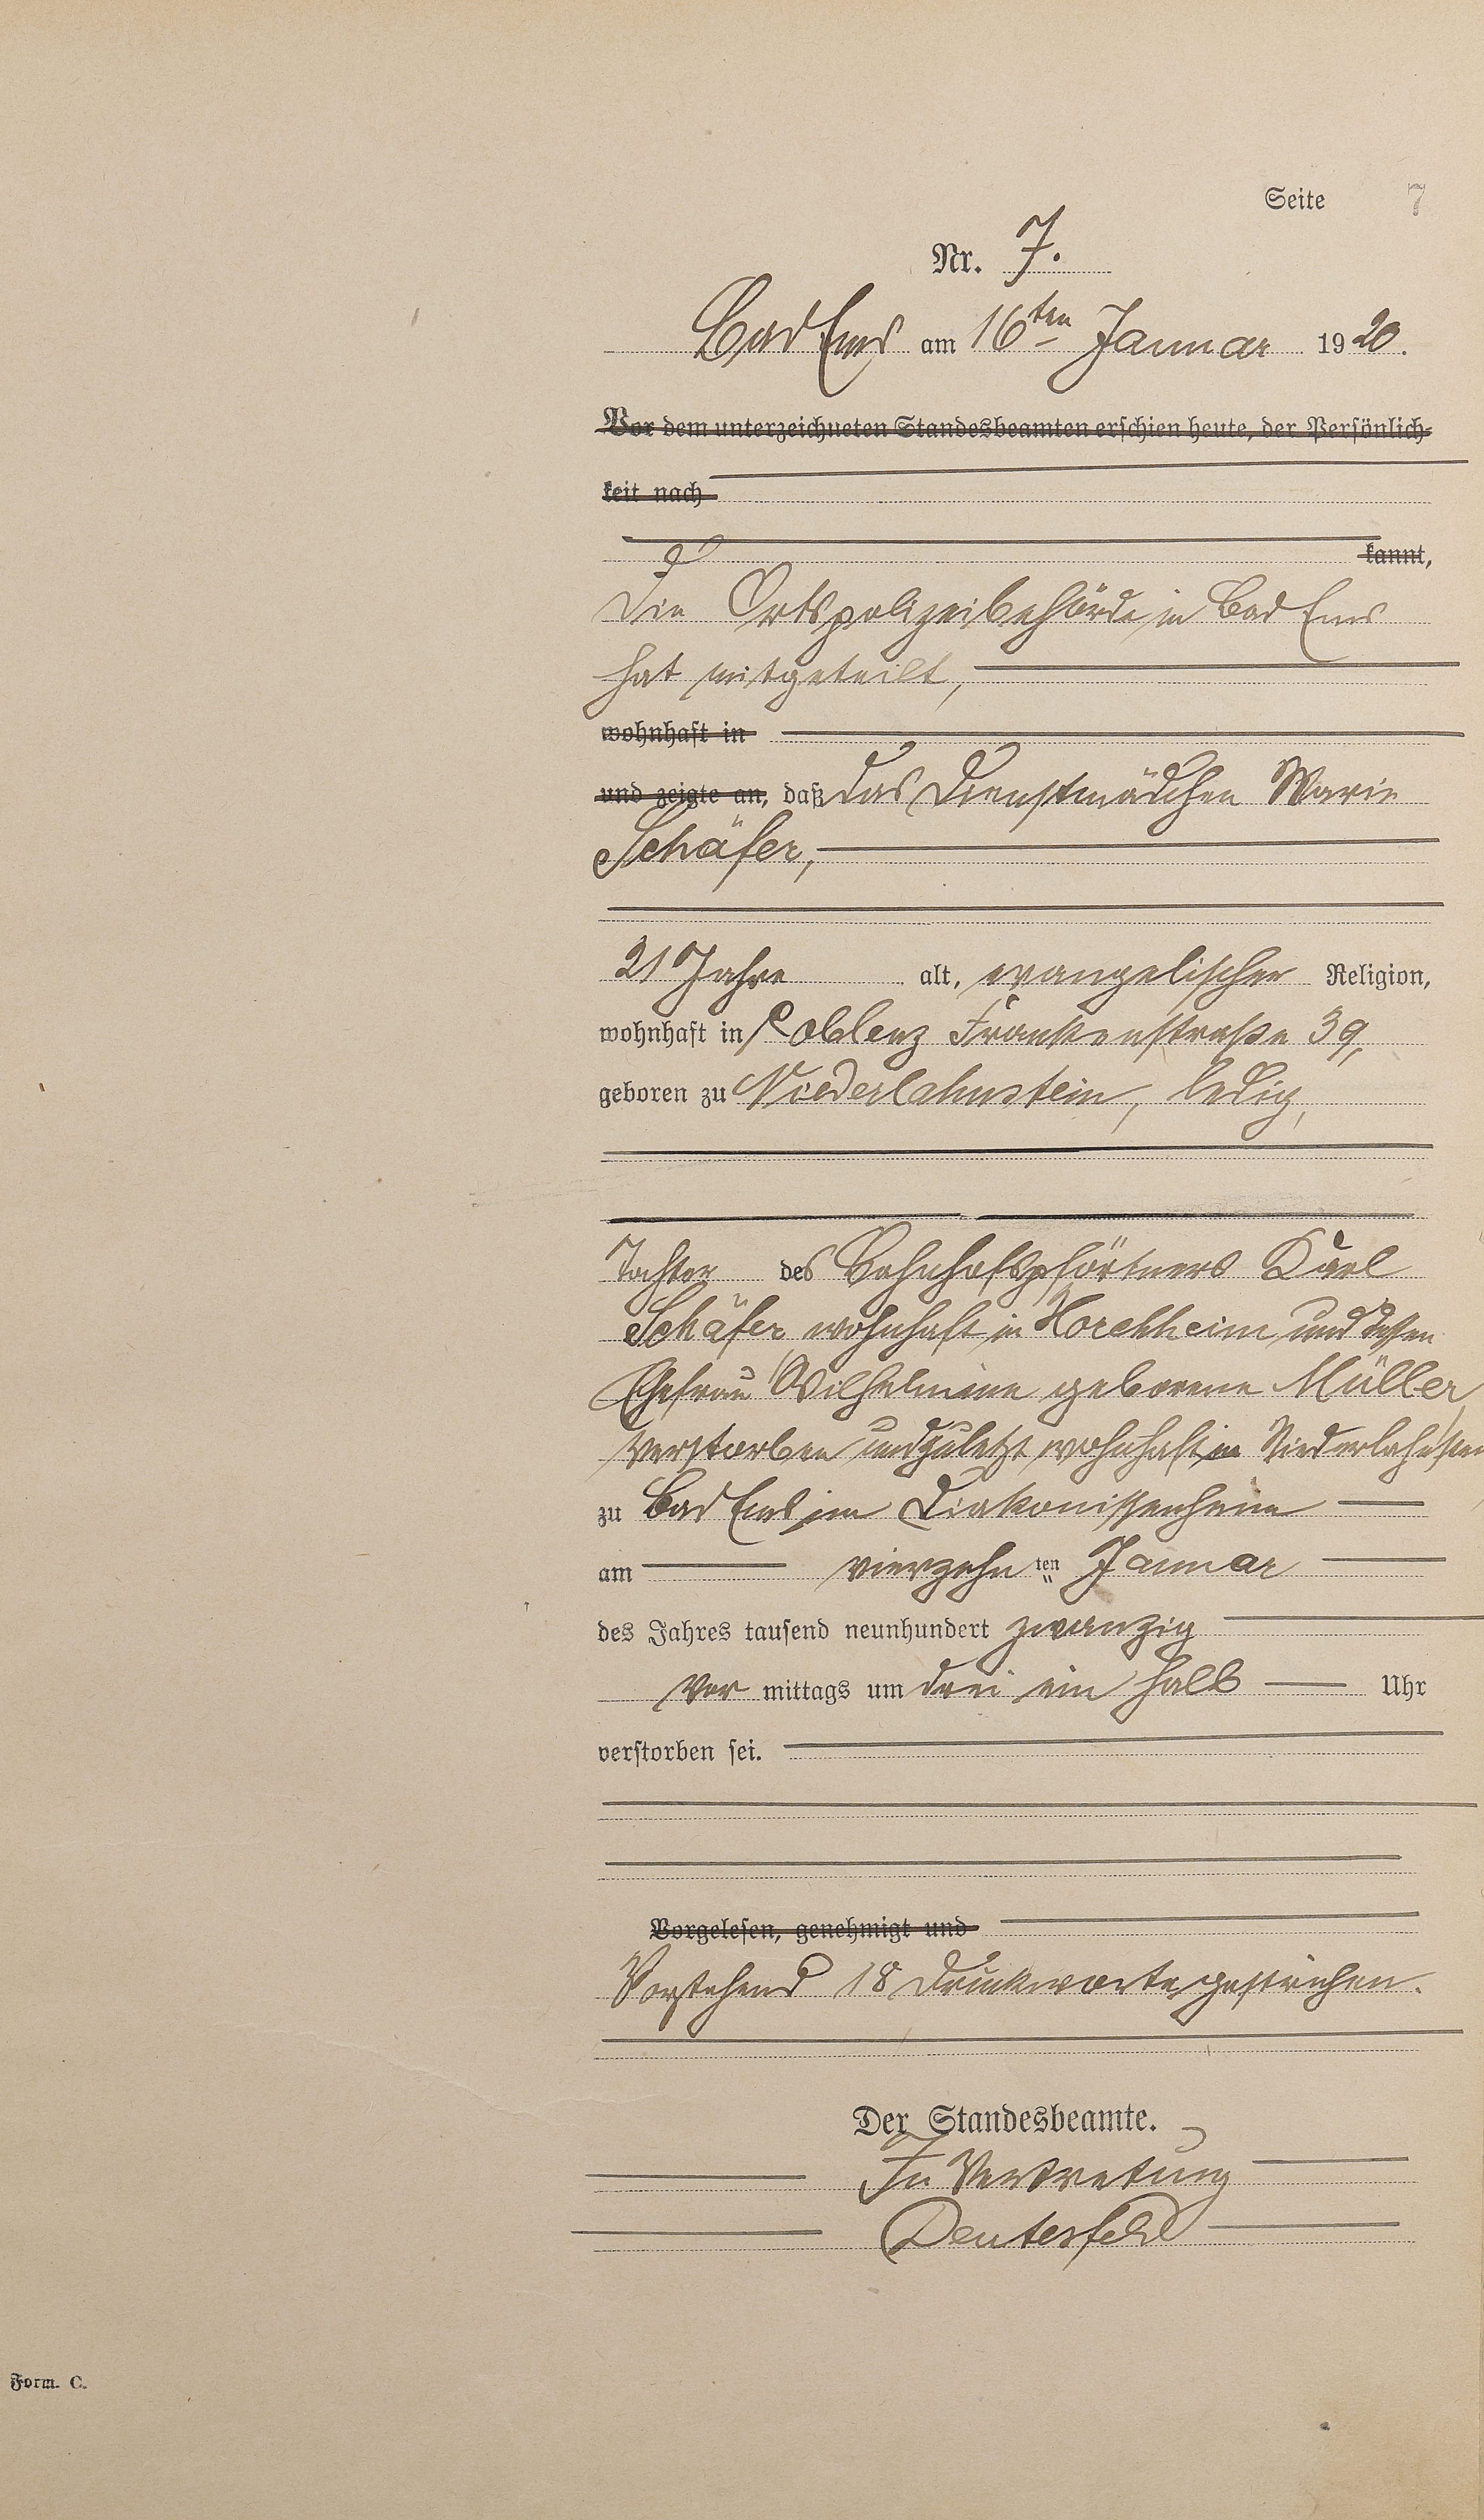 Seite 7
Nr. 7.
Bad Ems am 16ten Januar 1920.
Vor dem unterzeichneten Standesbeamten erschien heute, der Persönlich-
keit nach
kannt,
Die Ortspolizeibehörde in Bad Ems
hat mitgeteilt,
wohnhaft in
und zeigte an, daß das Dienstmädchen Marie
Schäfer,
21 Jahre alt, evangelischer Religion,
wohnhaft in Coblenz Frankenstraße 39,
geboren zu Niederlahnstein, ledig,
Tochter des Bahnhofspförtners Karl
Schäfer, wohnhaft in Horchheim und dessen
Ehefrau Wilhelmine geborene Müller,
verstorben und zuletzt wohnhaft in Niederlahnstein
zu Bad Ems im Diakonissenheim
am vierzehnten Januar
des Jahres tausend neunhundert zwanzig
Vor mittags um drei ein halb Uhr
verstorben sei.
Vorgelesen, genehmigt und
Vorstehend 18 Druckworte gestrichen.
Der Standesbeamte.
In Vertretung
Deutesfeld
Form. C.